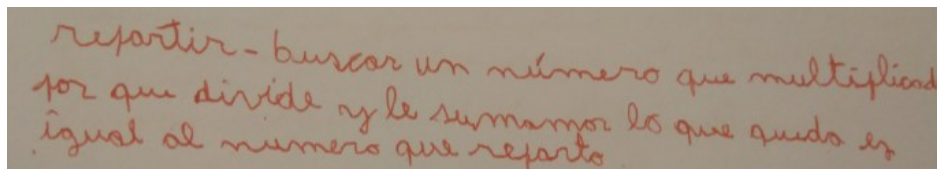 repartir - buscar un número que multiplicad
por que divide y le sumamos lo que queda es
igual al numero que reparto